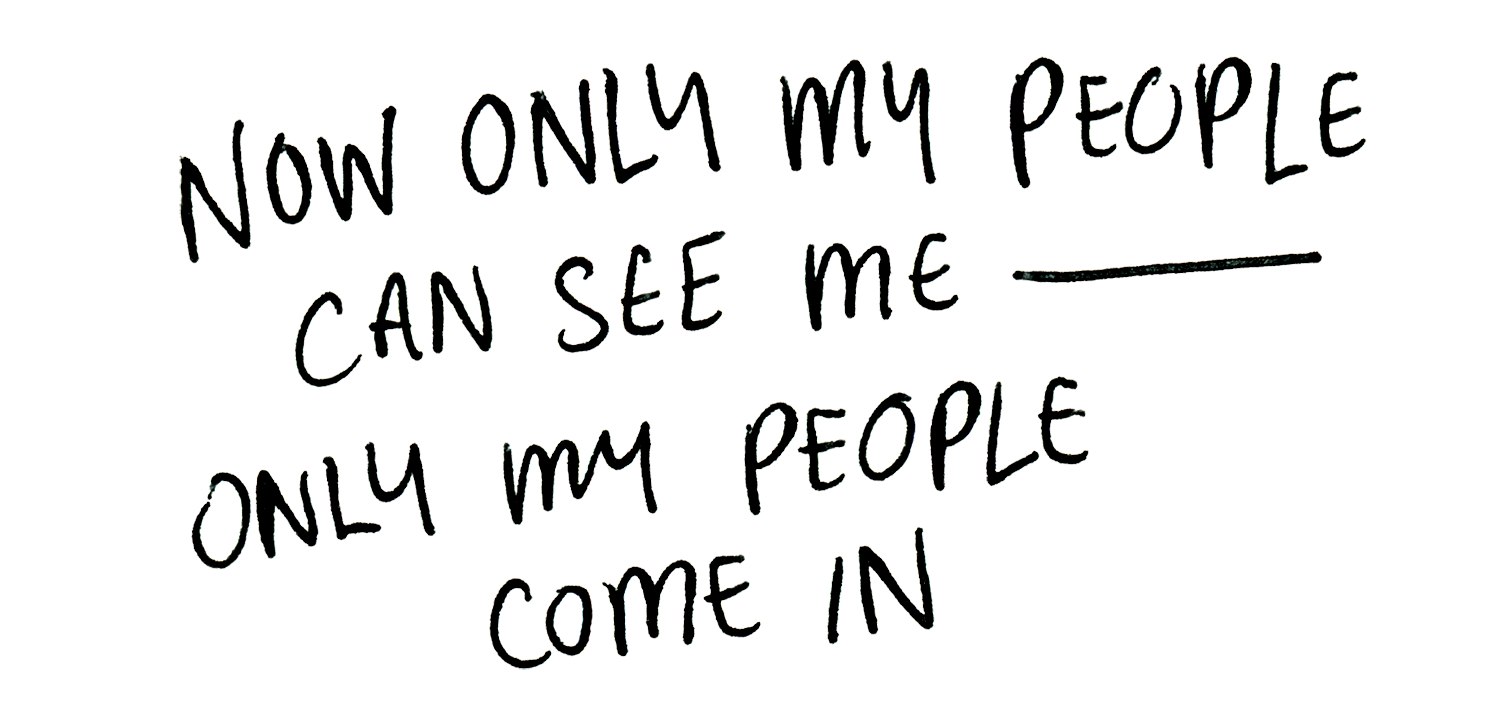 NOW ONLY MY PEOPLE
CAN SEE ME —
ONLY MY PEOPLE
COME IN